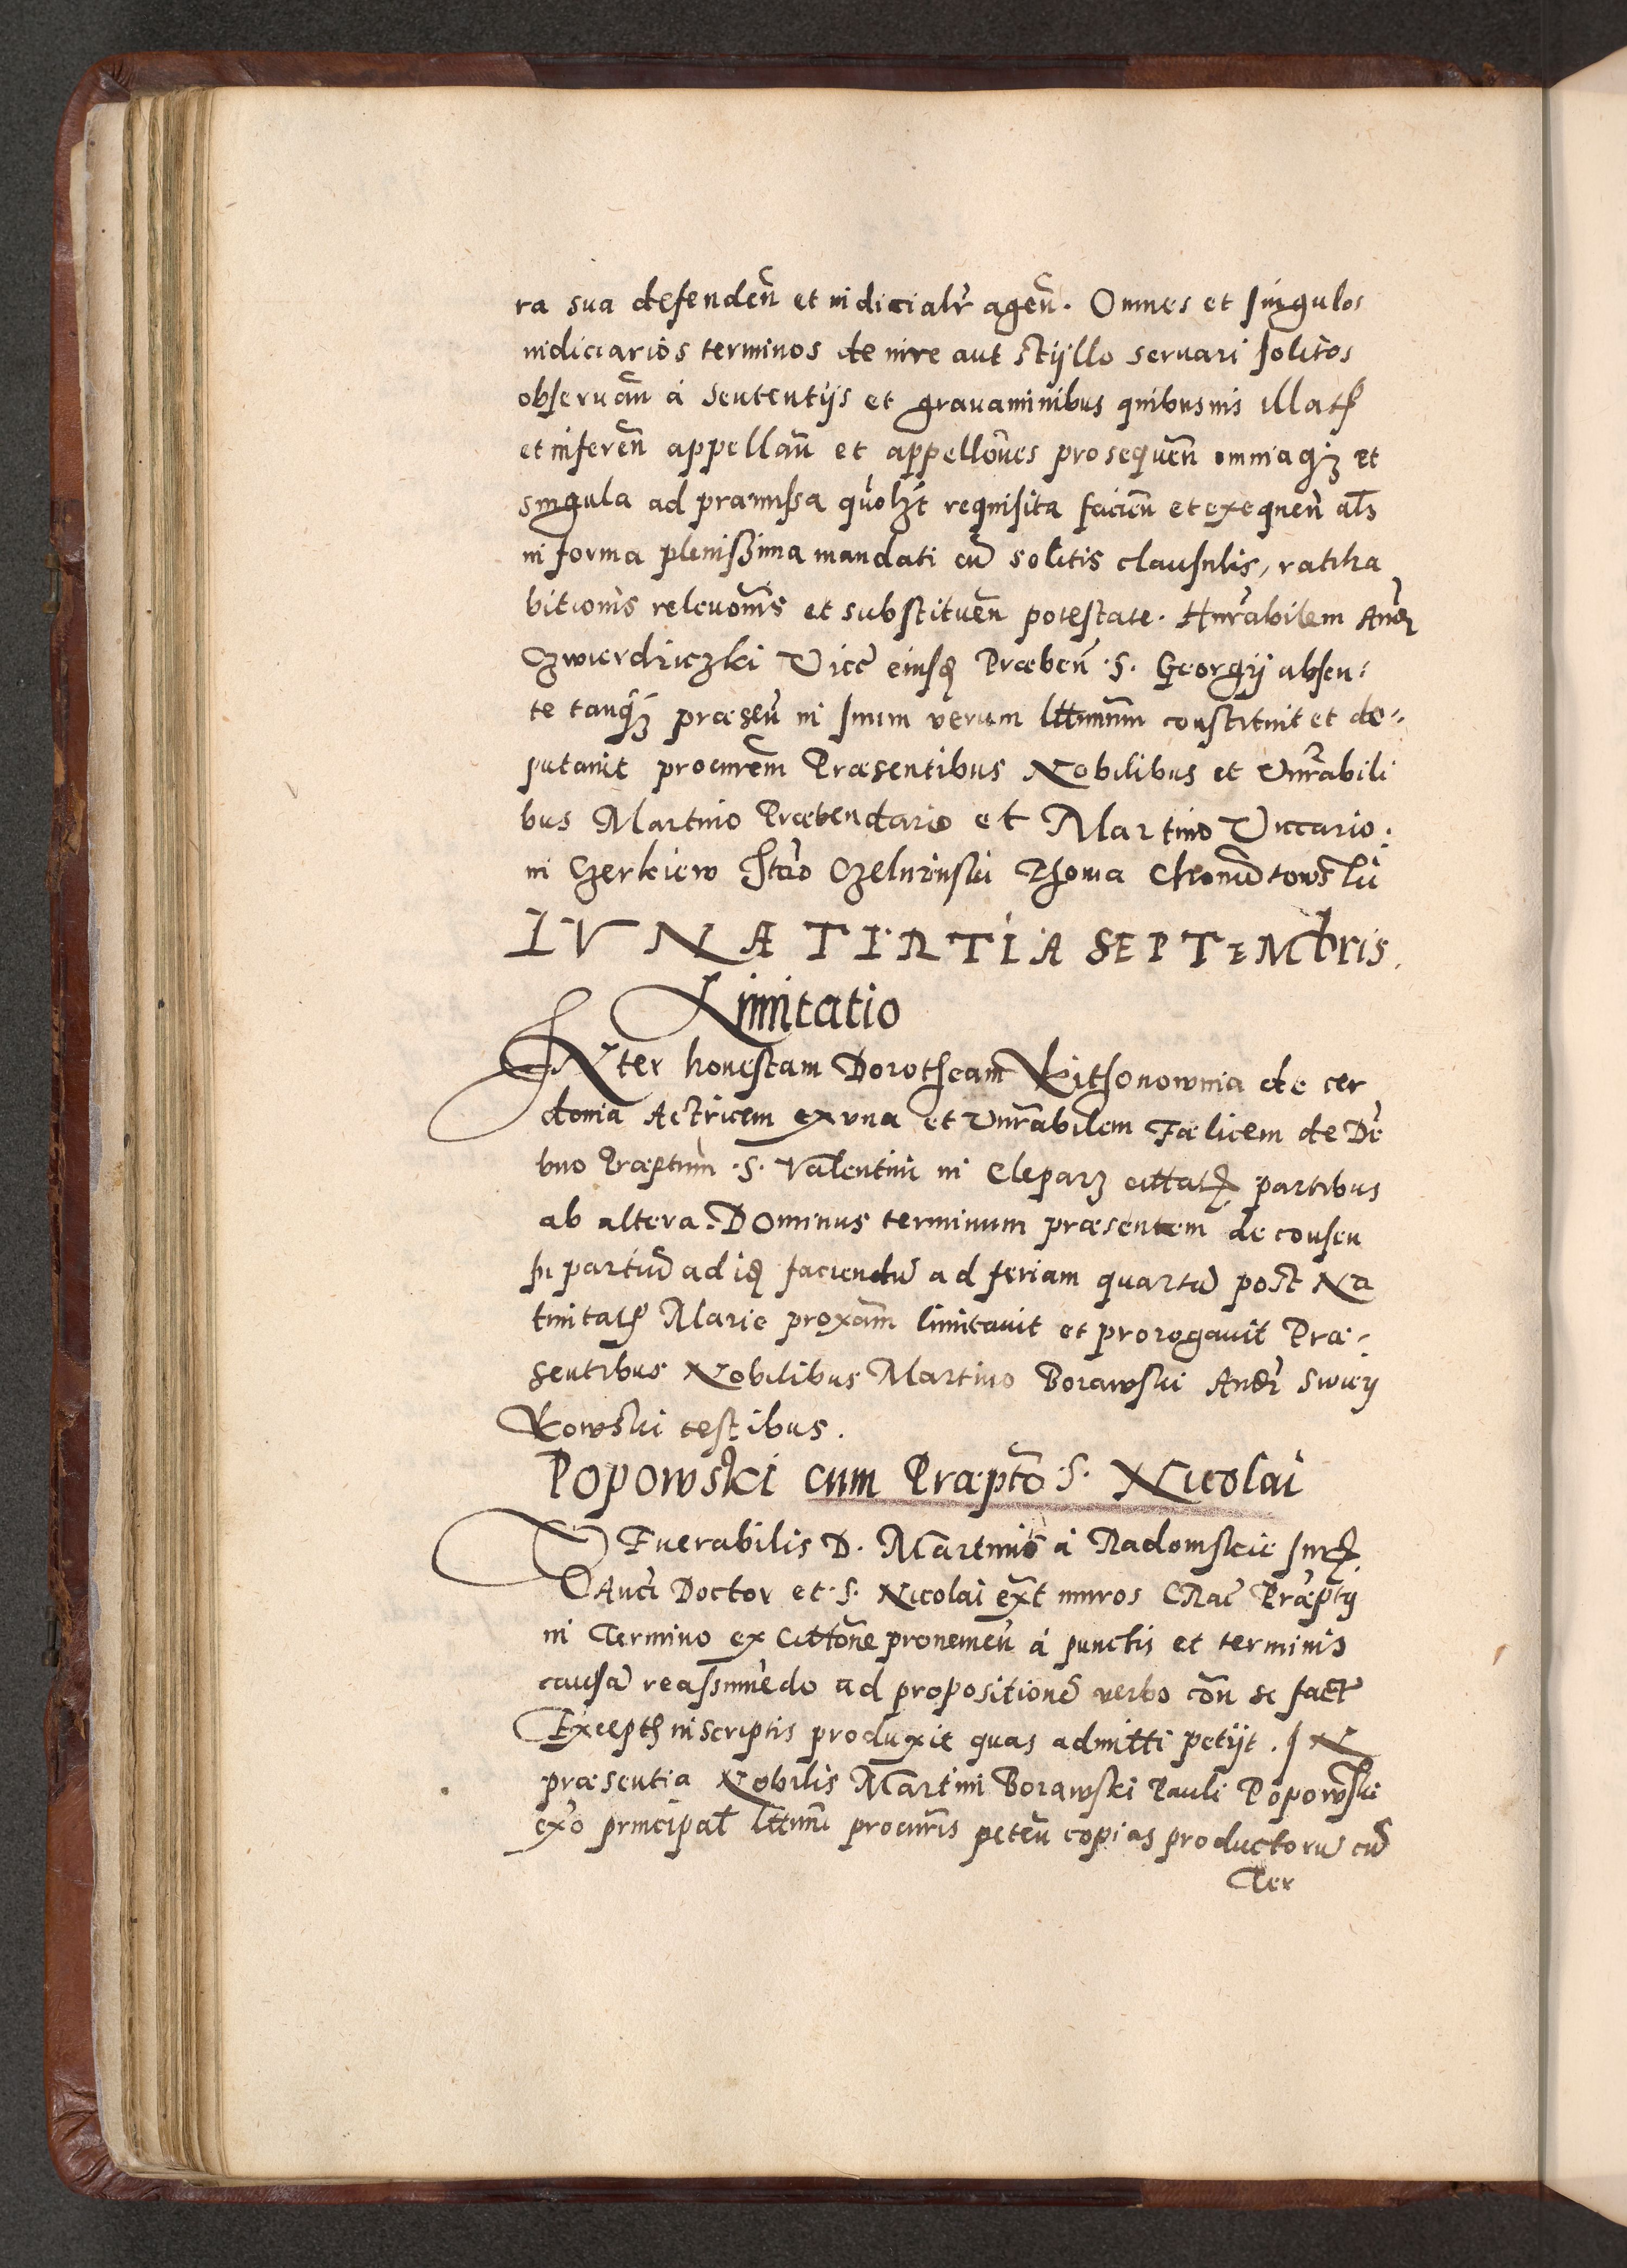 ra sua defendeñ et iudicialr̃ ageñ. Omnes et singulos
iudiciarios terminos de iure aut stijllo seruari solitos
obseruañ á sententijs et grauaminibus quibusuis illatꝭ
et infereñ appellañ et appellões prosequeñ omniaqꝫ et
singula ad præmissa quõlꝫt requisita facieñ et exequeñ als̃
in forma plenissima mandati cũ solitis clausulis, ratiha
bitionis releuõnis et substitueñ potestate. Hnrabilem Andꝛ
Czwierdziczki Vice eiusdẽ Præbeñ .S. Georgij absen⸗
te tanq̃ꝫ præseñ in suum verum lttimum constituit et de⸗
putauit procurem̃ Præsentibus Nobilibus et Vnrabili
bus Martino Præbendario et Martino Viccario.
in Czerkiew Stão Czeluinski Thoma Chomũtowski
LVNA TERTIA SEPTEMbris.
Limitatio
INter honestam Dorotheam Kithonownia de cer
donia Actricem ex vna et Vnr̃abilem Fælicem de Dẽ
bno Præptum .S. Valentini in Cleparꝫ cittatꝭ partibus
ab altera. Dominus terminum præsentem de consen
su partiũ ad idẽ faciendũ ad feriam quartã post Na
tiuitatꝭ Marie proxam̃ limitauit et prorogauit Præ⸗
sentibus Nobilibus Martino Borawski Andr̃ Swiey
kowski testibus.
Popowski cum Præptõ .S. Nicolai
VEnerabilis D. Martinus á Radomskie Iurꝭ
Auci Doctor et .S. Nicolai ext̃ muros CRac̃ Præpti
in Termino ex Cittõne proueñieñ á punctis et terminis
causã reassumẽdo ad propositionẽ verbo cõn se fact̃
Excepth in scriptis produxit quas admitti petijt. IN
præsentia Nobilis Martini Borawski Pauli Popowski
ex̃o principal̃ lttimi procuris̃ peteñ copias productorũ cũ
Ter